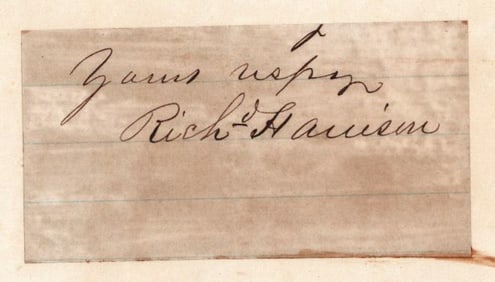 Yours respy
Richd Harrison